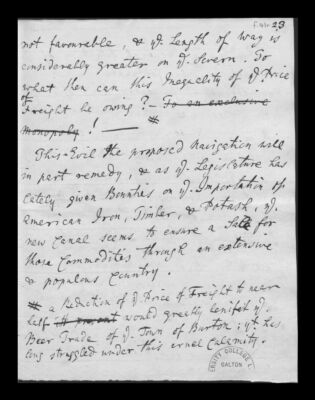 23
not favourable, & yt. Length of Way is
considerably greater on yt. Severn. To
what then can this Inequality of yt. Price
of Freight be owing? — To an exclusive
Monopoly! — #
This Evil the proposed Navigation will
in part remedy, & as yt. Legislature has
lately given Bounties on yt. Importation of
American Iron, Timber, & Potash, yt.
new Canal seems to ensure a Sale for
those Commodities through an extensive
& populous Country.
# a Reduction of yt. Price of Freight to near
half would greatly benefit yt.
Beer Trade of yt. Town of Burton; yt. has
long struggled under this cruel Calamity.
GALTON